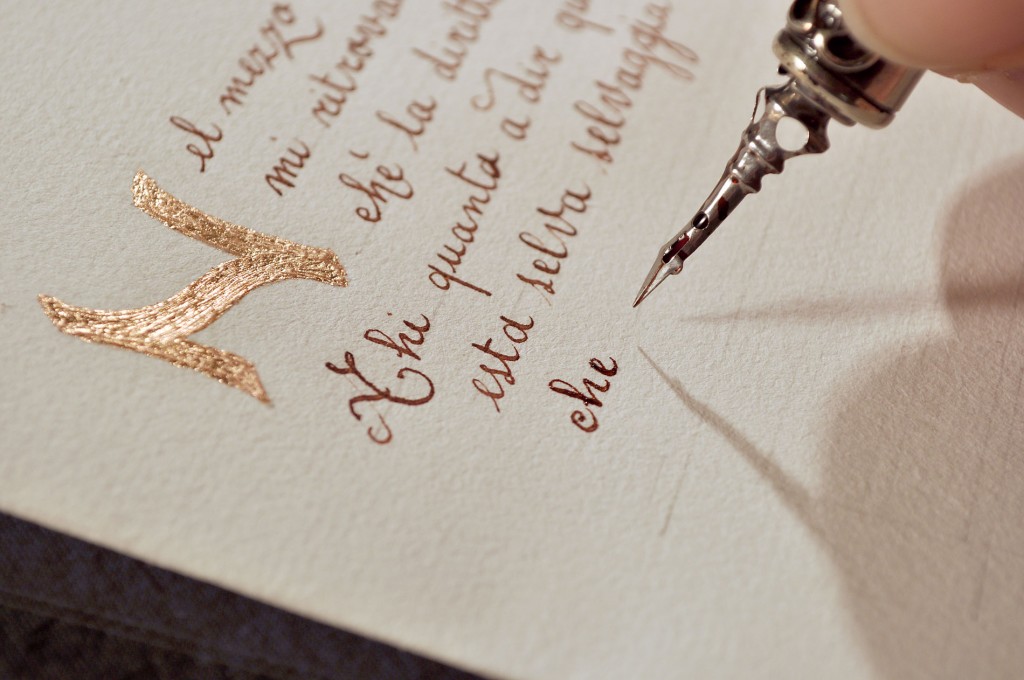 Nel mezzo
mi ritrova
ché la diritt
Ahi quanta a dir qu
esta selva selvaggia
che